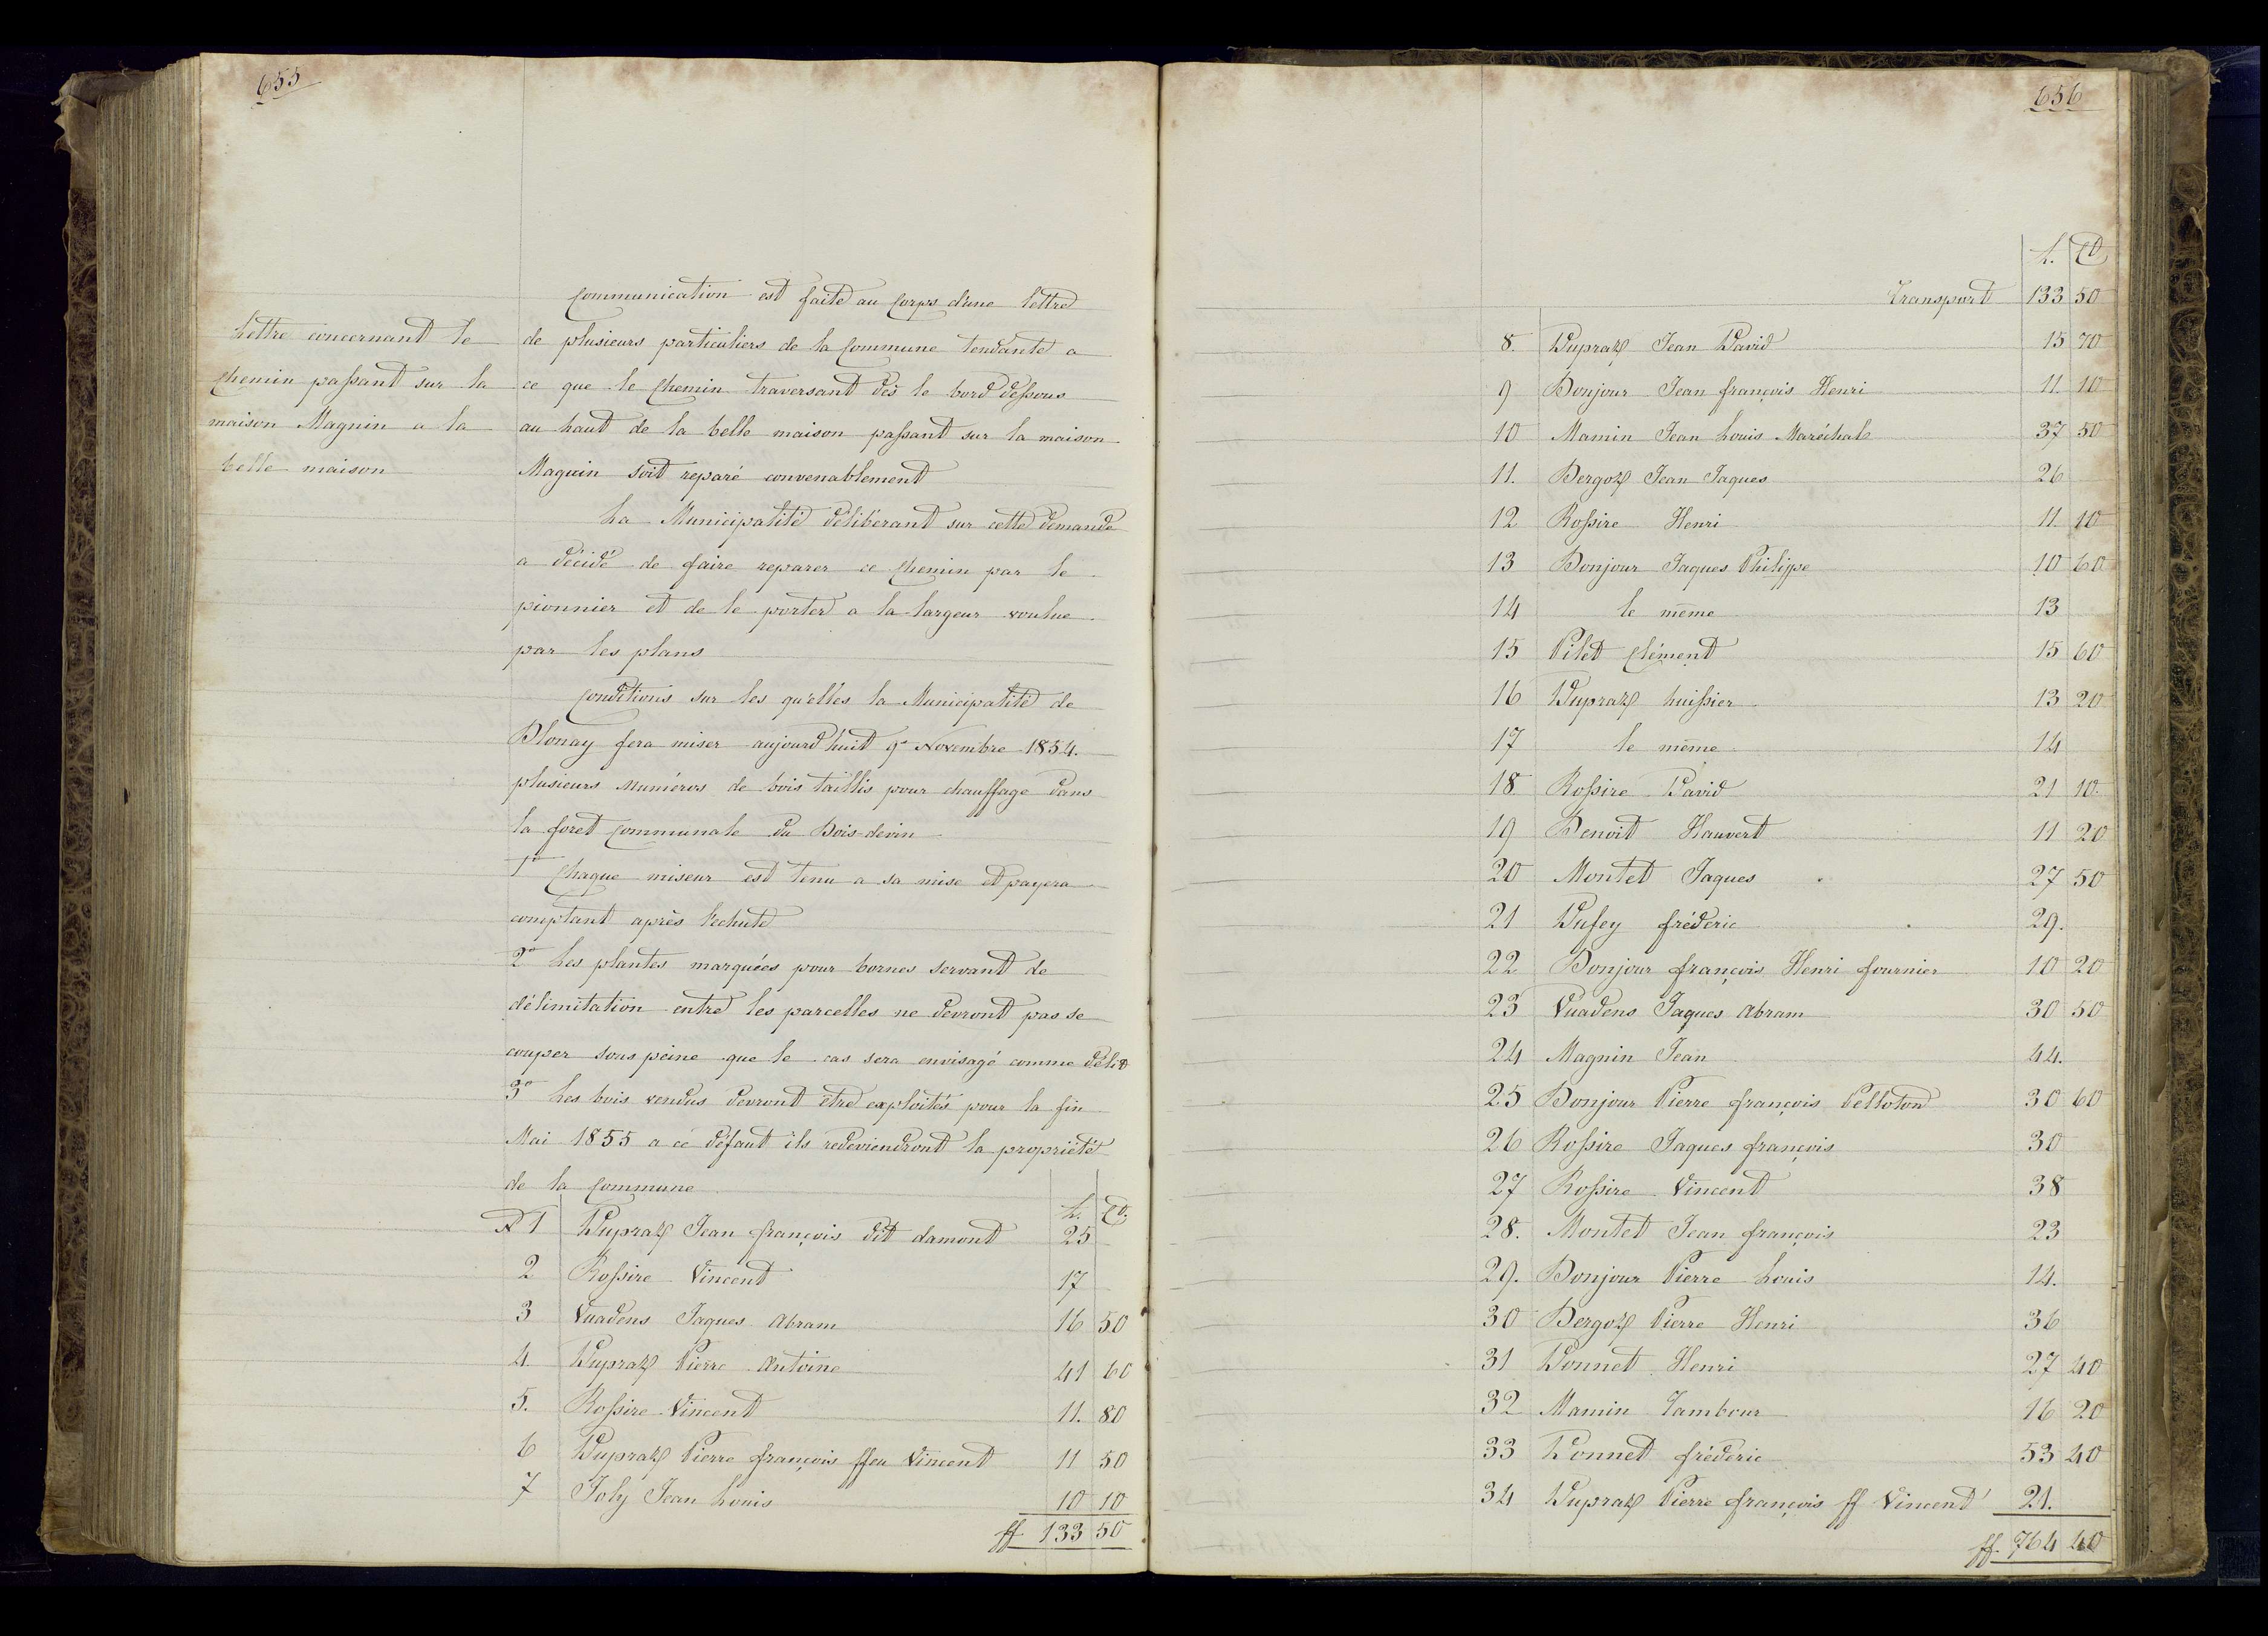 655
Lettre concernant le
Chemin passant sur la
maison Magnin a la
belle maison
Communication est faite au Corps d'une lettre
de plusieurs particuliers de la Commune tendante a
ce que le Chemin traversant dès le bord dessous
au haut de la belle maison passant sur la maison
Magnin soit reparé convenablement
La Municipalité délibérant sur cette demande
a décidé de faire reparer ce Chemin par le
pionnier et de le porter a la largeur voulue
par les plans
Conditions sur les qu'elles la Municipalité de
Blonay fera miser aujourd'huit 9e Novembre 1854.
plusieurs Numéros de bois taillis pour chauffage dans
la foret Communale du Bois-devin
1o Chaque miseur est tenu a sa mise et payera
comptant après l'echute
2o Les plantes marquées pour bornes servant de
délimitation entre les parcelles ne devront pas se
couper sous peine que le cas sera envisagé comme délit
3o Les bois vendus devront être exploités pour la fin
Mai 1855 a ce défaut ils redeviendront la propriété
de la Commune
f. Ct.
No 1 Dupraz Jean françois dit damont 25
2 Rossire Vincent 17
3 Vuadens Jaques Abram 16 50
4 Dupraz Pierre Antoine 41 60
5. Rossire Vincent 11. 80
6 Dupraz Pierre françois ffeu Vincent 11 50
7 Joly Jean Louis 10 10
ff 133 50
656
f. Ct
Transport 133 50
8. Dupraz Jean David 15 70
9 Bonjour Jean françois Henri 11. 10
10 Mamin Jean Louis Maréchal 37 50
11. Bergoz Jean Jaques 26
12 Rossire Henri 11. 10
13 Bonjour Jaques Philippe 10 60
14 le même 13
15 Pilet Clément 15 60
16 Dupraz huissier 13 20
17 le même 14
18 Rossire David 21 10
19 Benoit Hauvert 11 20
20 Montet Jaques 27 50
21 Dufey fréderic 29.
22 Bonjour françois Henri fournier 10 20
23 Vuadens Jaques Abram 30 50
24 Magnin Jean 44.
25 Bonjour Pierre françois Pelloton 30 60
26 Rossire Jaques françois 30
27 Rossire Vincent 38
28. Montet Jean françois 23
29. Bonjour Pierre Louis 14.
30 Bergoz Pierre Henri 36
31 Bonnet Henri 27 40
32 Mamin Tambour 16 20
33 Bonnet fréderic 53 40
34 Dupraz Pierre françois ff Vincent 21.
ff. 764 40